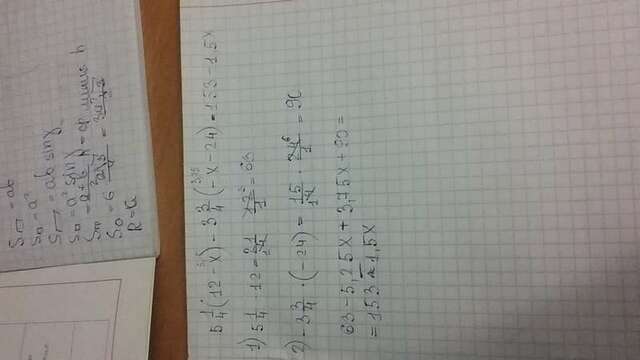 S▱ = ab
S = a²
S▱ = ab sinγ
S = a² sinγ
S = a+b/2 h = ср. линия h
S = 6 a²√3/4 = 3a²√3/2
R = a
5 1/4 (12 - x) - 3 3/4 (-x - 24) = 153 - 1,5x
1) 5 1/4 · 12 = 21/4 · 12/1 = 63
2) -3 3/4 · (-24) = 15/4 · 24/1 = 90
63 - 5,25x + 3,75x + 90 =
= 153 - 1,5x